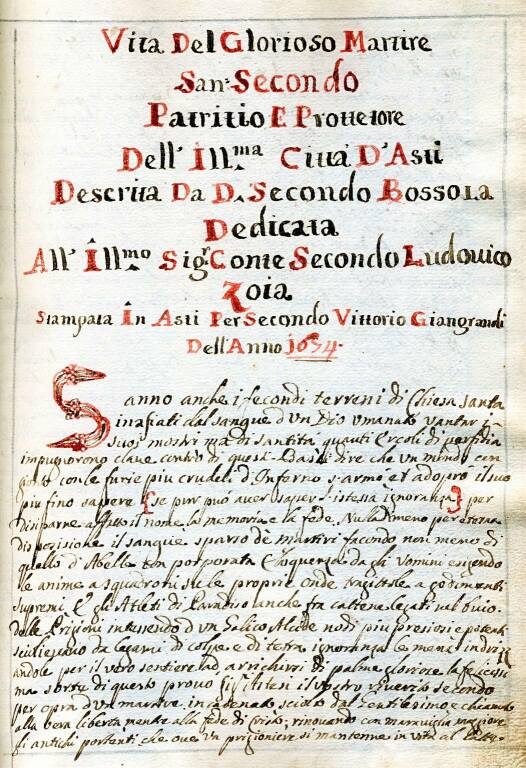 Vita Del Glorioso Martire
San: Secondo
Patritio E Protettore
Dell' Ill:ma Città D'Asti
Descritta Da D. Secondo Bossola
Dedicata
All' Ill:mo Sigr Conte Secondo Ludovico
Zoia
Stampata In Asti Per Secondo Vittorio Giangrandi
Dell'Anno 1654.
Sanno anche i fecondi terreni di Chiesa santa
inafiati dal sangue d'un Dio umanato vantar i
suoi mostri ma di santità quanti Ercoli di perfidia
impugnorono clave contro di questi. Basti dire che un mondo con
con le furie più crudeli d'Inferno s'armò, et adoprò il suo
più fino sapere (se pur può aver saper l'istessa ignoranza) per
disiparne affatto il nome, la memoria e la fede. Nulladimeno per eterna
disposizione il sangue sparso de martiri facendo non meno di
quello d'Abelle con porporata eloquenza dagli Uomini
le anime a squadroni su le proprie onde
supremi. E gli Atleti di Paradiso anche fra cattene legati nel buio
delle Prigioni d'un Gallico Alcide nodi più preziosi e potenti
da legami di colpe e di tetra ignoranza le menti indriz
andole per il vero sentiere ad arrichirsi di palme gloriose la felicissi
ma sorte di questo provò il vostro secondo
per opra d'un martire incatenato, sciolto dal Gentilesimo e chiamato
alla vera libertà mentre alla fede di Cristo, rinovando con maraviglia maggiore
gli antichi portenti che ove un prigioniere si mantenne in vita al